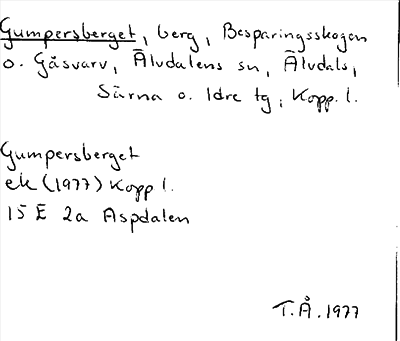 Gumpersberget, berg, Besparingsskogen
o. Gåsvarv, Älvdalens sn, Älvdals,
Särna o. Idre tg, Kopp. l.
Gumpersberget
ek (1977) Kopp l.
15 E 2a Aspdalen
T.Å. 1977